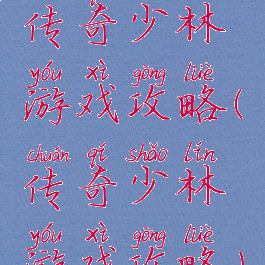 传奇少林
yóu xì gōng lüè
游戏攻略(
chuán qí shǎo lín
传奇少林
yóu xì gōng lüè
游戏攻略)